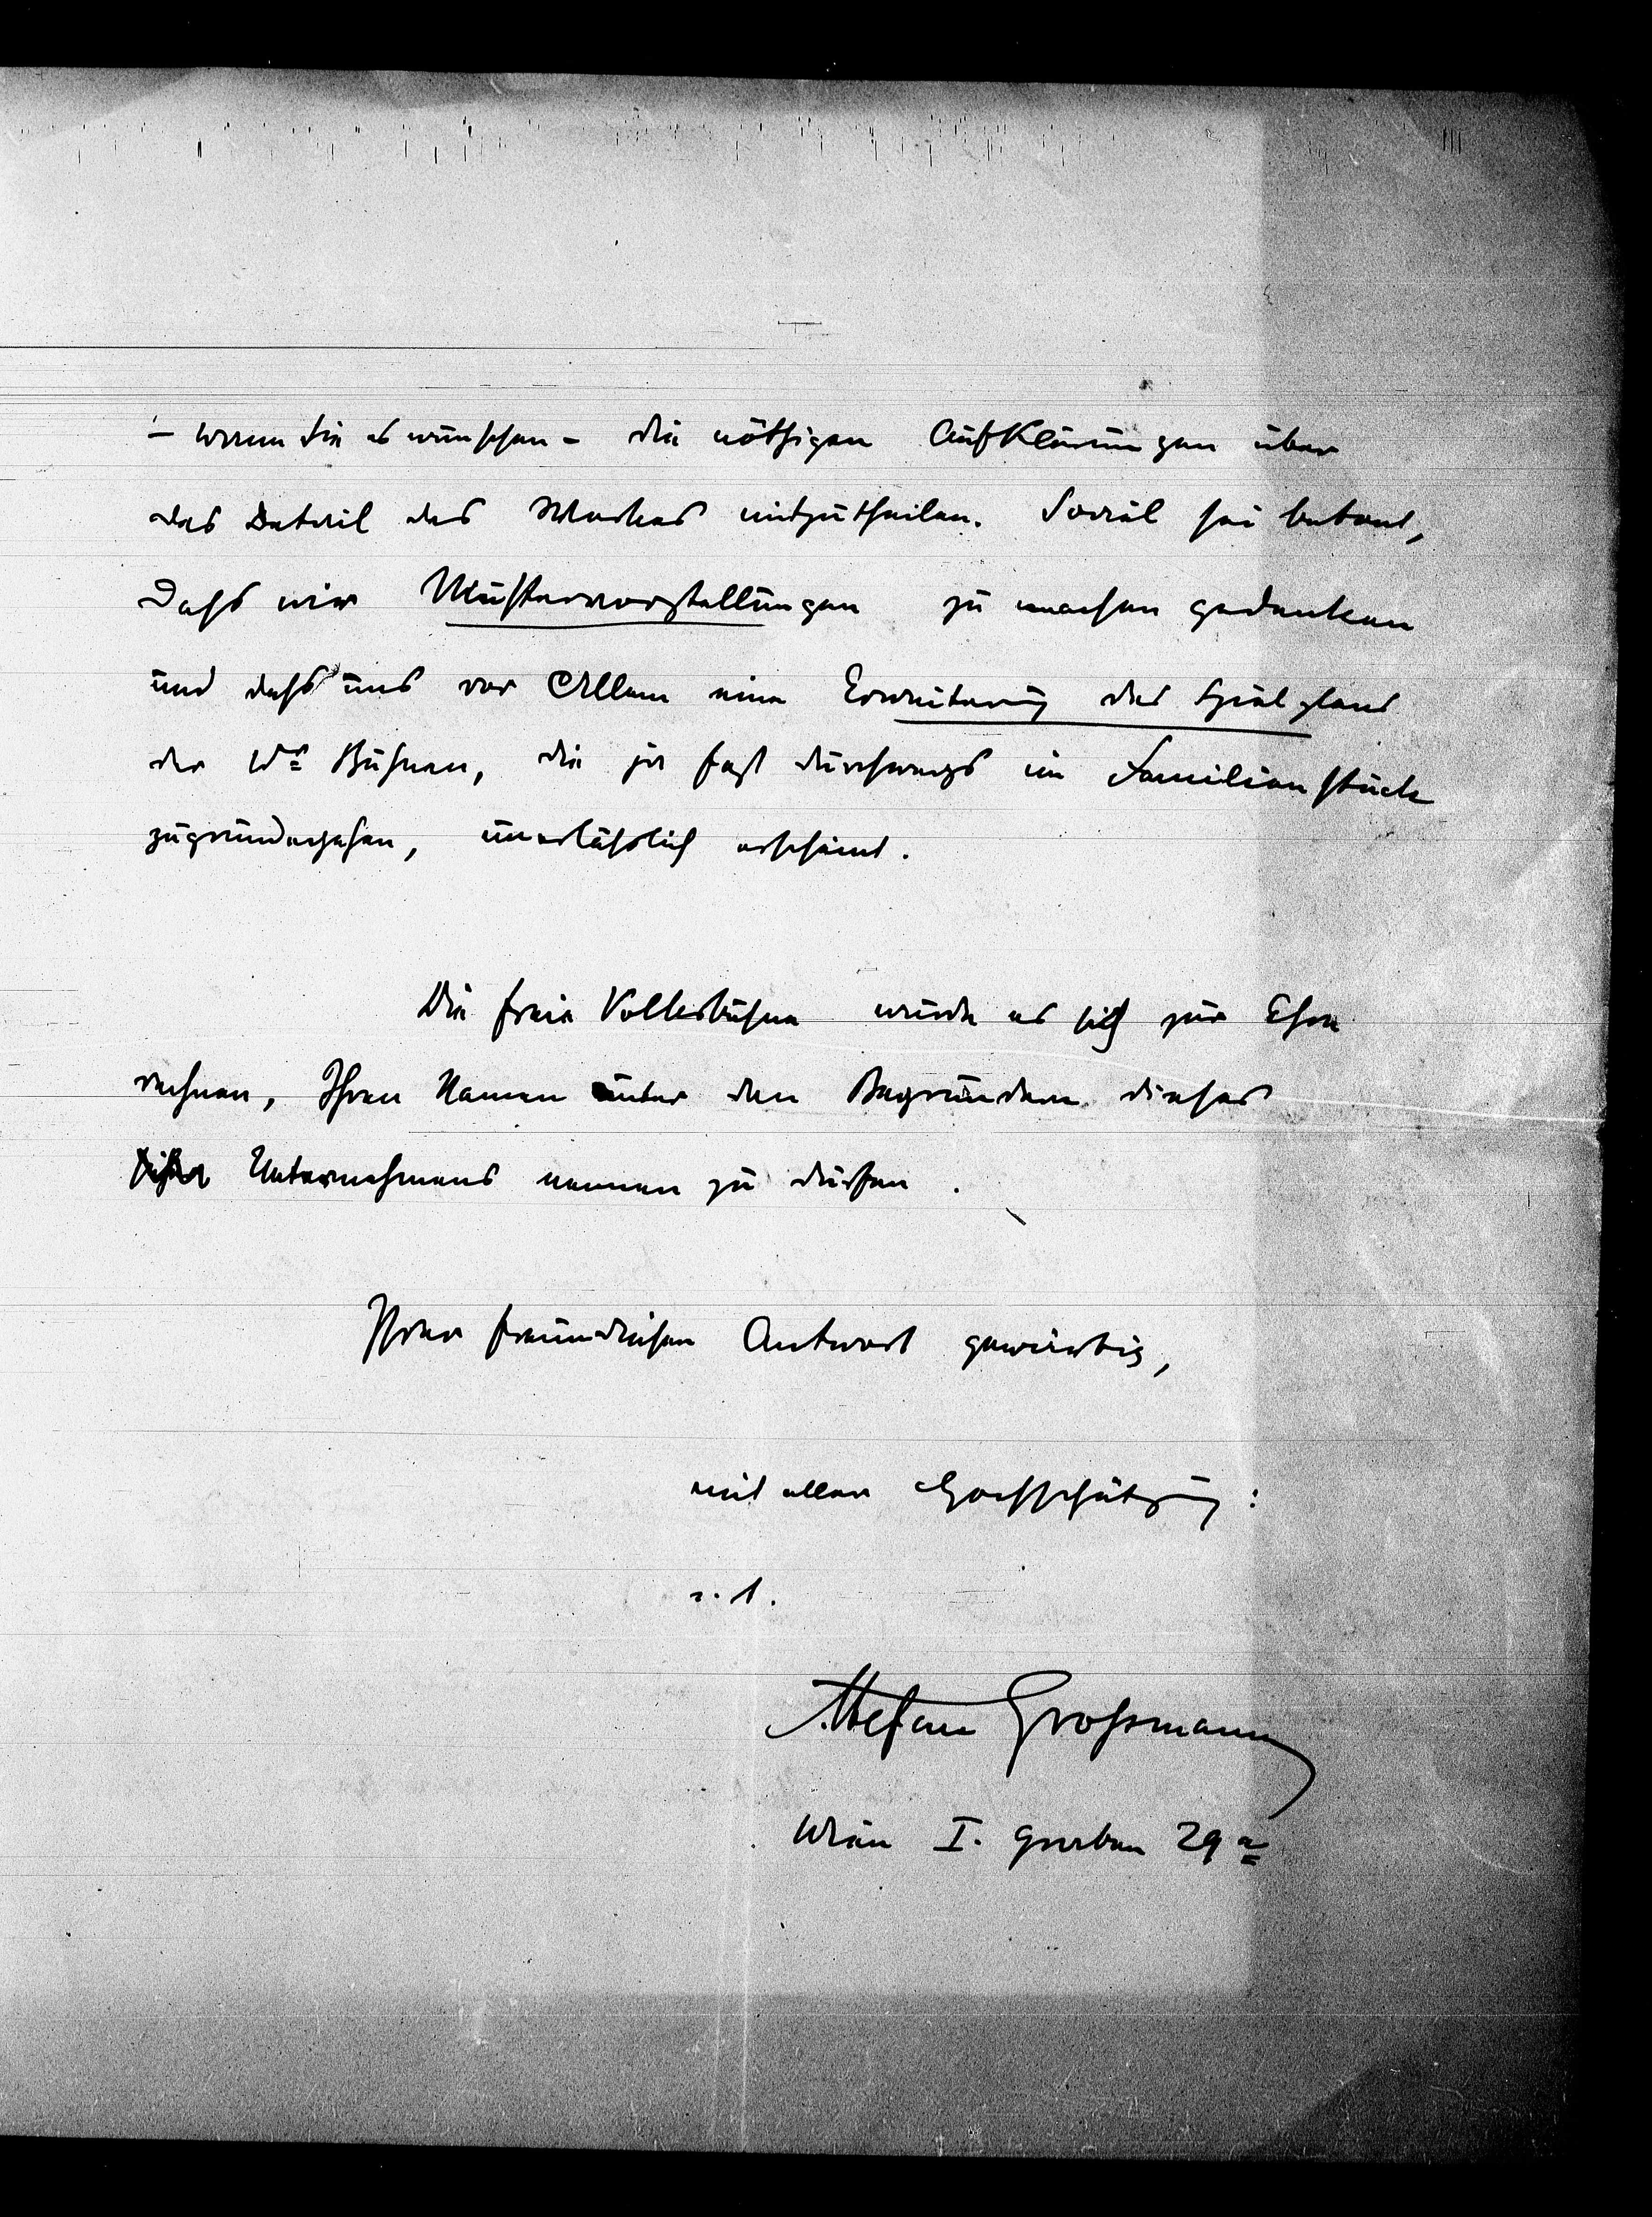 – wenn Sie es wünschen – die nöthigen Aufklärungen über
das Detail des Werkes mitzutheilen. Soviel sei betont,
dass wir Mustervorstellungen zu machen gedenken
und dass uns vor Allem eine Erweiterung des Spielplans
der Wr Bühnen, die ja fast durchwegs im Familienstück
zugrundegehen, unerlässlich erscheint.
Die freie Volksbühne würde es sich zur Ehre
rechnen, Ihren Namen unter den Begründern dieses
Unternehmens nennen zu dürfen.
Ihrer freundlichen Antwort gewärtig,
mit aller Hochschätzung:
Stefan Grossmann
Wien I. Graben 29a